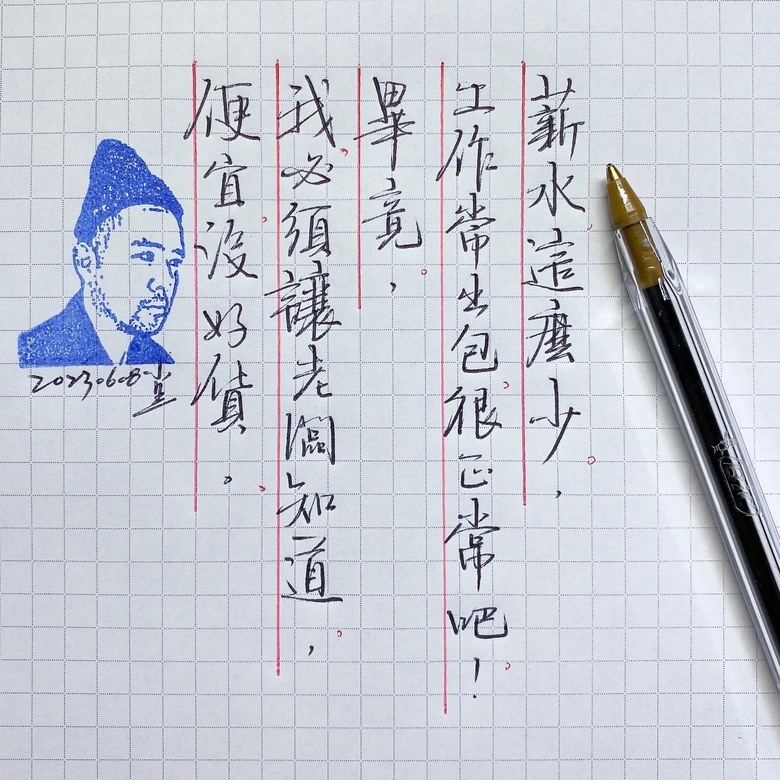 薪水這麼少，
工作常出包很正常吧！
畢竟，
我必須讓老闆知道，
便宜沒好貨。
2023.06.08